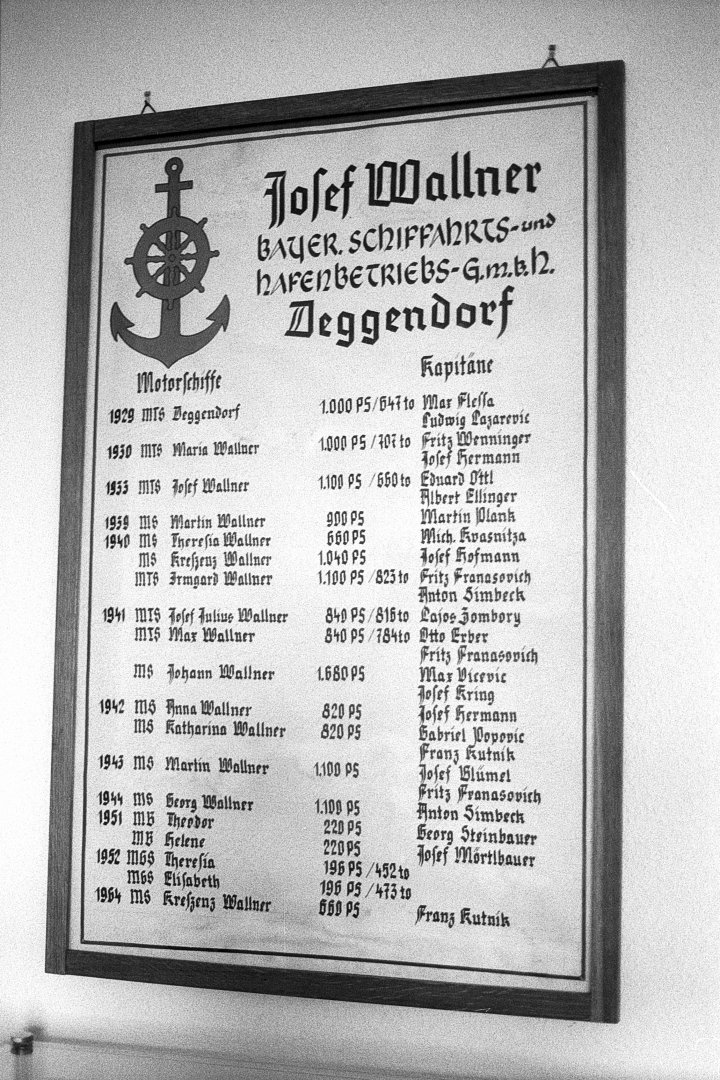 Josef Wallner
BAYER. SCHIFFAHRTS- und
HAFENBETRIEBS-G.m.b.H.
Deggendorf
Motorschiffe Kapitäne
1929 MTS Deggendorf 1.000 PS/647 to Max Flessa
Ludwig Lazarevic
1930 MTS Maria Wallner 1.000 PS/707 to Fritz Wenninger
Josef Hermann
1933 MTS Josef Wallner 1.100 PS/660 to Eduard Öttl
Albert Ellinger
1939 MS Martin Wallner 900 PS Martin Plank
1940 MS Theresia Wallner 660 PS Mich. Kvasnitza
MS Kreszenz Wallner 1.040 PS Josef Hofmann
MTS Irmgard Wallner 1.100 PS/823 to Fritz Franasovich
Anton Simbeck
1941 MTS Josef Julius Wallner 840 PS/816 to Lajos Zombory
MTS Max Wallner 840 PS/784 to Otto Erber
Fritz Franasovich
MS Johann Wallner 1.680 PS Max Vicevic
Josef Kring
1942 MS Anna Wallner 820 PS Josef Hermann
MS Katharina Wallner 820 PS Gabriel Popovic
Franz Kutnik
1943 MS Martin Wallner 1.100 PS Josef Blümel
Fritz Franasovich
1944 MS Georg Wallner 1.100 PS Anton Simbeck
1951 MB Theodor 220 PS Georg Steinbauer
MB Helene 220 PS Josef Mörtlbauer
1952 MGS Theresia 196 PS/452 to
MGS Elisabeth 196 PS/473 to
1964 MS Kreszenz Wallner 660 PS Franz Kutnik